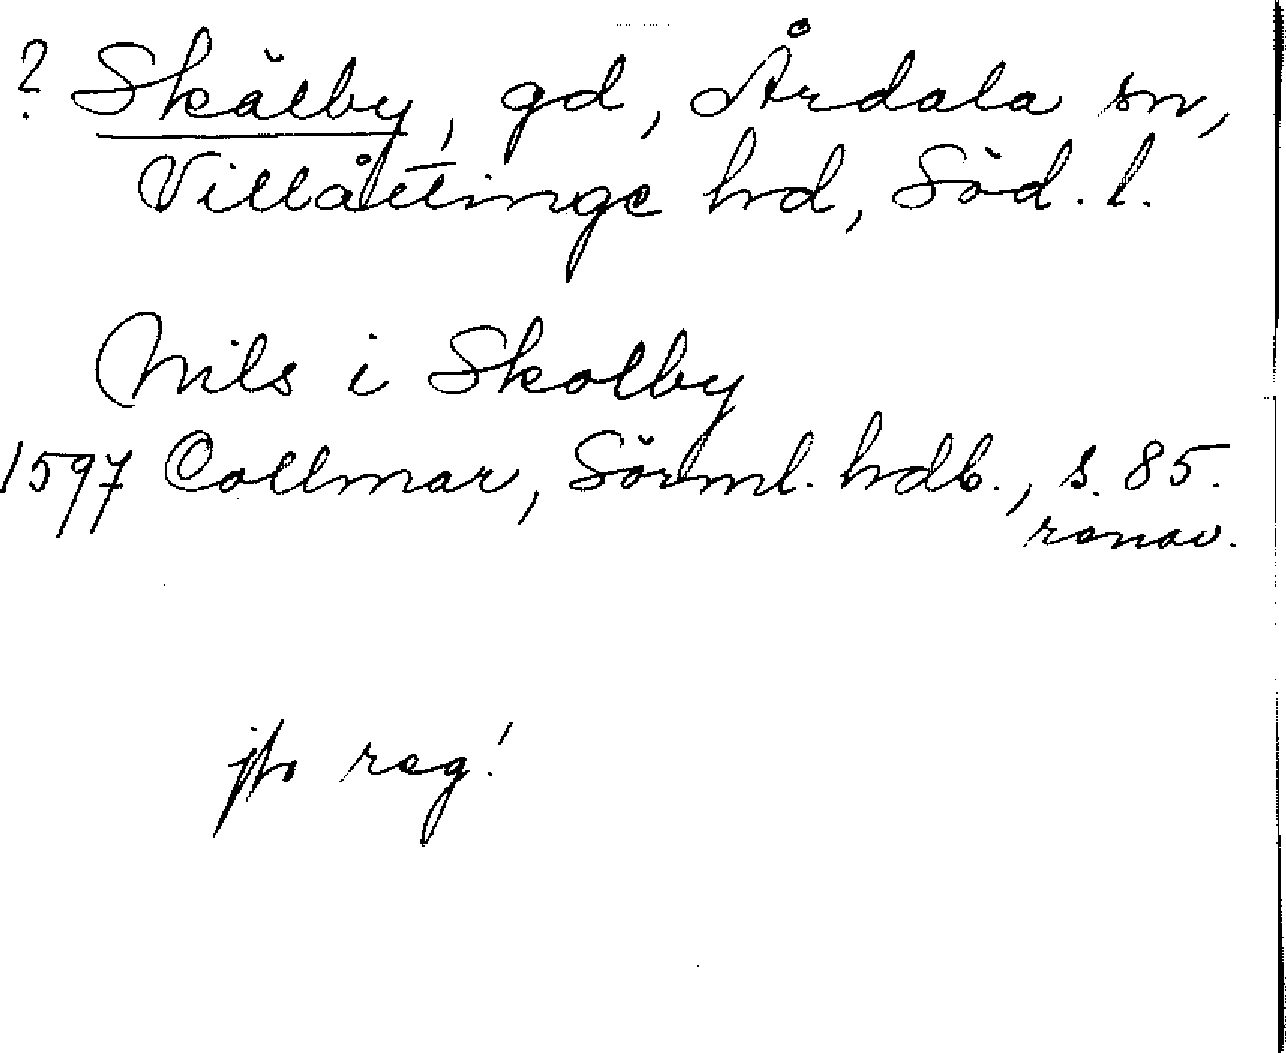 ? Skälby, gd, Årdala sn,
Villåttinge hd, Söd. l.
Nils i Skolby
1597 Collmar, Sörml. hdb., s. 85.
renov.
jfr reg!